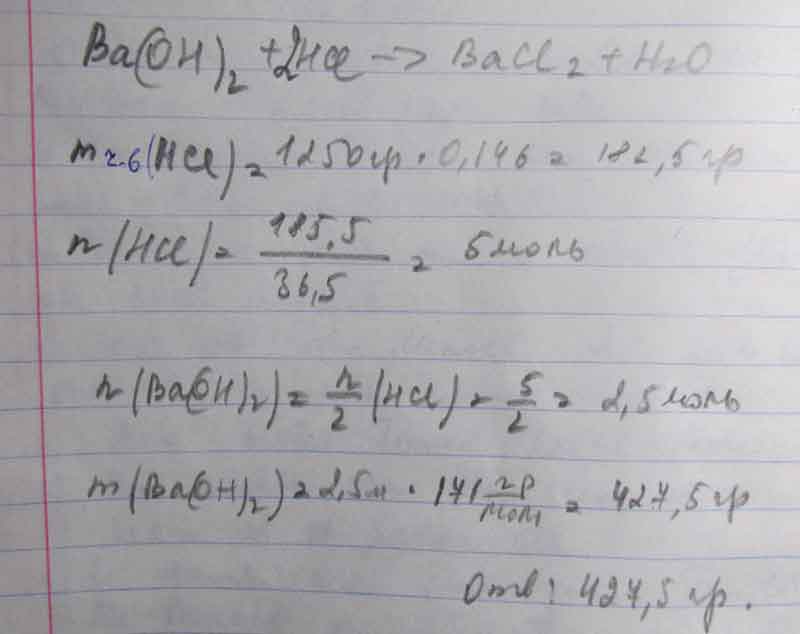 Ba(OH)2 + 2HCl -> BaCl2 + H2O
m г-6(HCl) = 1250гр · 0,146 = 182,5 гр
n(HCl) = 185,5 / 36,5 = 5 моль
n(Ba(OH)2) = n/2 (HCl) = 5/2 = 2,5 моль
m(Ba(OH)2) = 2,5м · 171 гр/моль = 427,5 гр
Отв: 427,5 гр.